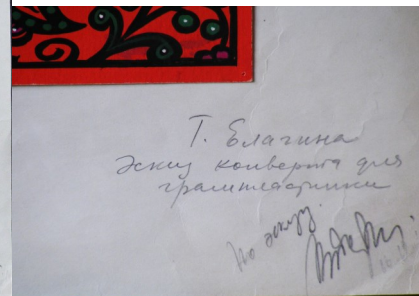 Т. Благина
Эскиз конверта для
грампластинки
По эскизу.